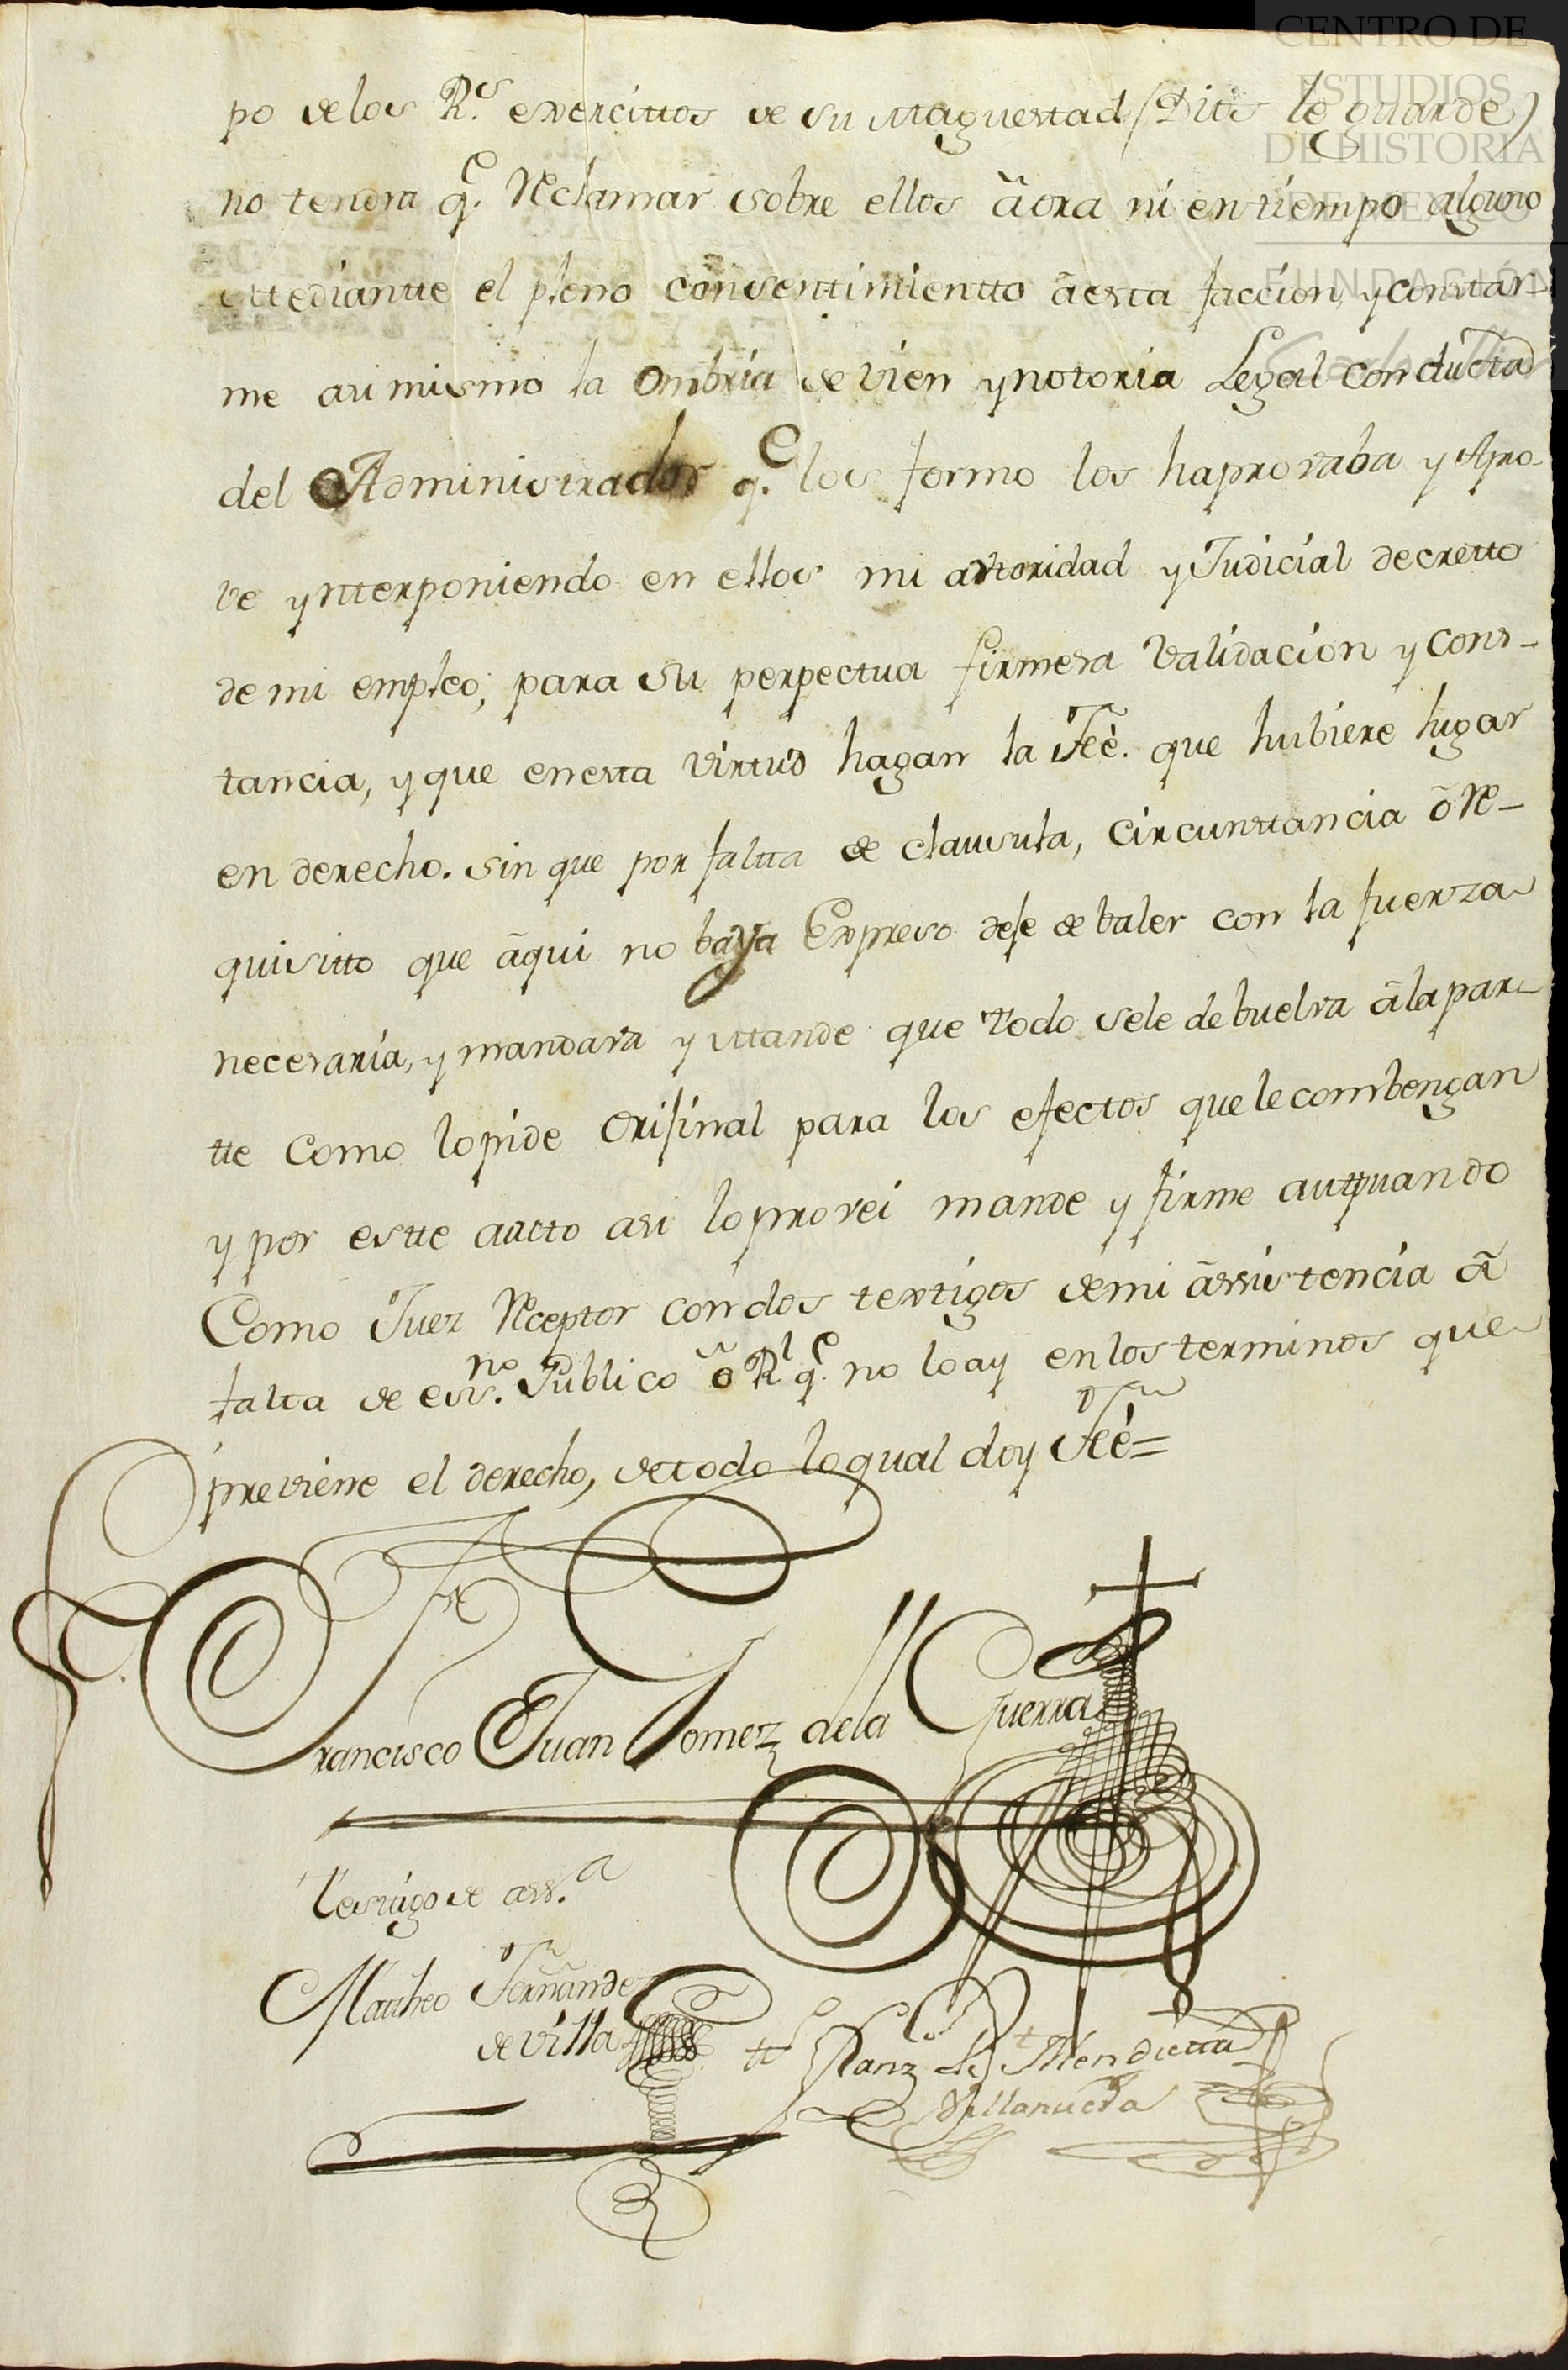 CENTRO DE
ESTUDIOS
DE HISTORIA
DE MEXICO
FUNDACIÓN
po delos R.s exercittos de su Maguestad (Dios le guarde)
no tendra q.e Reclamar sobre ellos aora ni en tiempo alguno
Mediantte el pleno consentimientto a esta faccion, y constar-
me asi mismo la Ombria de vien y notoria Legal conducta
del Administrador q.e los formo los haprovaba y Apro-
ve ynterponiendo en ellos mi avtoridad y Judicial decretto
de mi empleo, para su perpectua firmesa validacion y cons-
tancia, y que enesta virtud hagan la Feé. que hubiere lugar
en derecho. sin que por faltta de clausula, circunstancia ô Re-
quisitto que âqui no baya Expreso dese de baler con la fuerza
necesaria, y mandava y Mande que todo sele debuelva âla par-
tte como lo pide orisinal para los efectos que le combengan
y por estte autto asi lo provei mande y firme auttuando
Como Juez Receptor con dos testigos demi assistencia â
falta de ess.no Publico ô R.l q.e no lo ay en los terminos que
previene el derecho, de todo lo qual doy Feé=
Francisco Juan Gomez dela Guerra
Testigo de ass.a
Matheo Fernandez
de villa
Mendietta
Villanueva